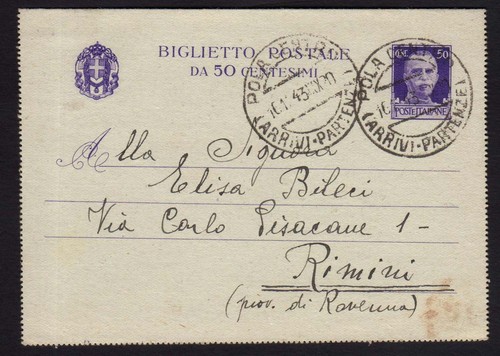 BIGLIETTO POSTALE
DA 50 CENTESIMI
POLA CENTRO
(ARRIVI-PARTENZE)
POLA
(ARRIVI-PARTENZE)
50
POSTE ITALIANE
Alla Signora
Elisa Bileci
Via Carlo Pisacane 1-
Rimini
(prov. di Ravenna)